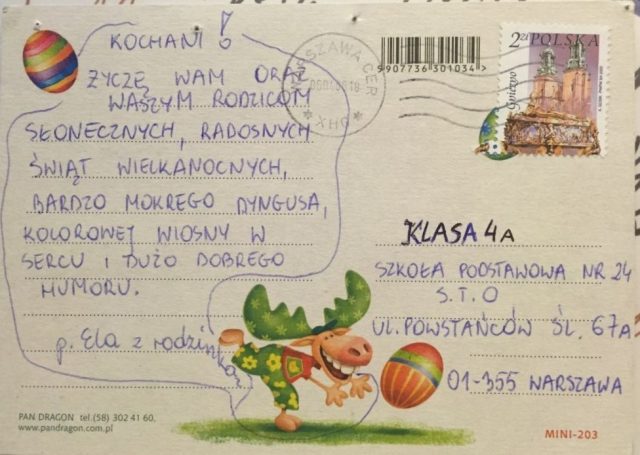 KOCHANI!
ŻYCZĘ WAM ORAZ
WASZYM RODZICOM
SŁONECZNYCH, RADOSNYCH
ŚWIĄT WIELKANOCNYCH,
BARDZO MOKREGO DYNGUSA,
KOLOROWEJ WIOSNY W
SERCU I DUŻO DOBREGO
HUMORU.
p. Ela z rodzinką
PAN DRAGON tel.(58) 302 41 60,
www.pandragon.com.pl
9907736301034>
WARSZAWA CER
2zł POLSKA
Gniezno
KLASA 4A
SZKOŁA PODSTAWOWA NR 24
S.T.O
UL. POWSTAŃCÓW ŚL. 67A
01-355 WARSZAWA
MINI-203